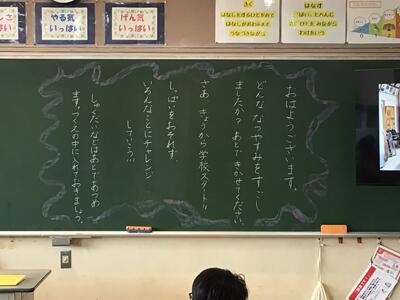 やる気
いっぱい
げん気
いっぱい
きく
はなす
おはようございます。
どんな なつやすみをすごし
ましたか？ あとで きかせてください。
さあ きょうから 学校スタート!!
しっぱいをおそれず、
いろんなことにチャレンジ
していこう!!!
しゅくだいなどはあとであつめ
ます。つくえの中に入れておきましょう。